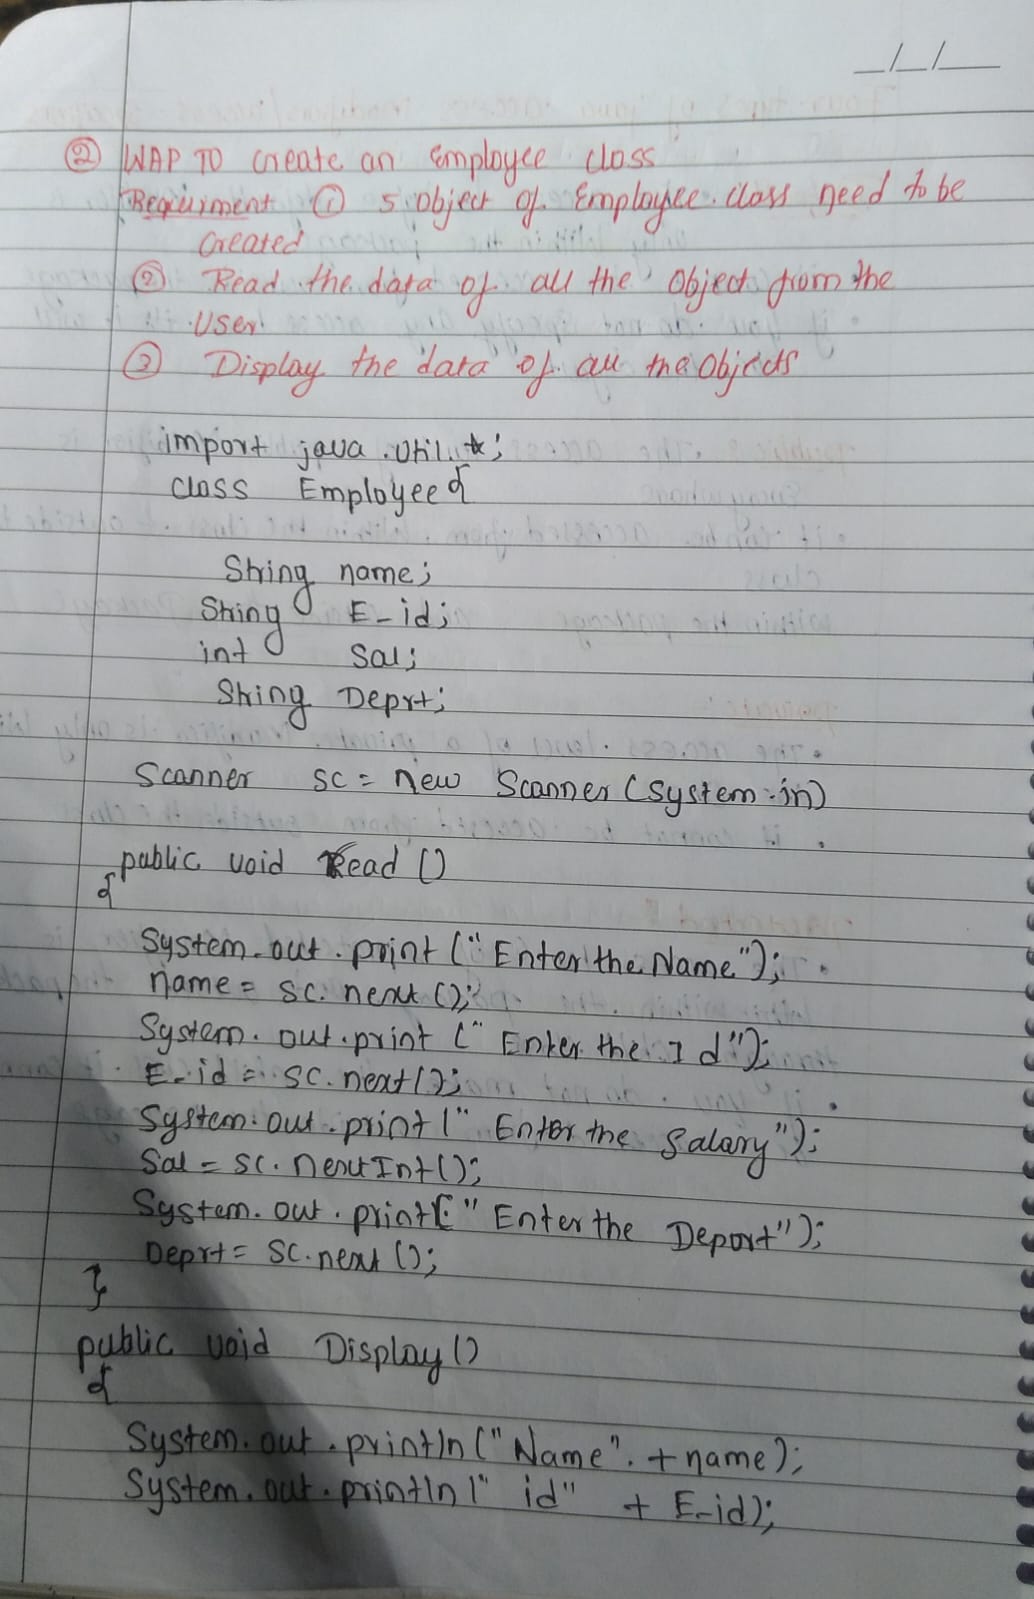 _/_/__
② WAP TO create an Employee class
Requirment ① 5 object of Employee class need to be
created
② Read the data of all the Object from the
User
③ Display the data of all the Objects
import java.util.*;
class Employee{
String name;
String E_id;
int Sal;
String Deprt;
Scanner sc = new Scanner(System.in)
public void Read()
{
System.out.print("Enter the Name");
name = sc.next();
System.out.print("Enter the Id");
E_id = sc.next();
System.out.print("Enter the Salary");
Sal = sc.nextInt();
System.out.print("Enter the Deport");
Deprt = sc.next();
}
public void Display()
{
System.out.println("Name" + name);
System.out.println("id" + E_id);